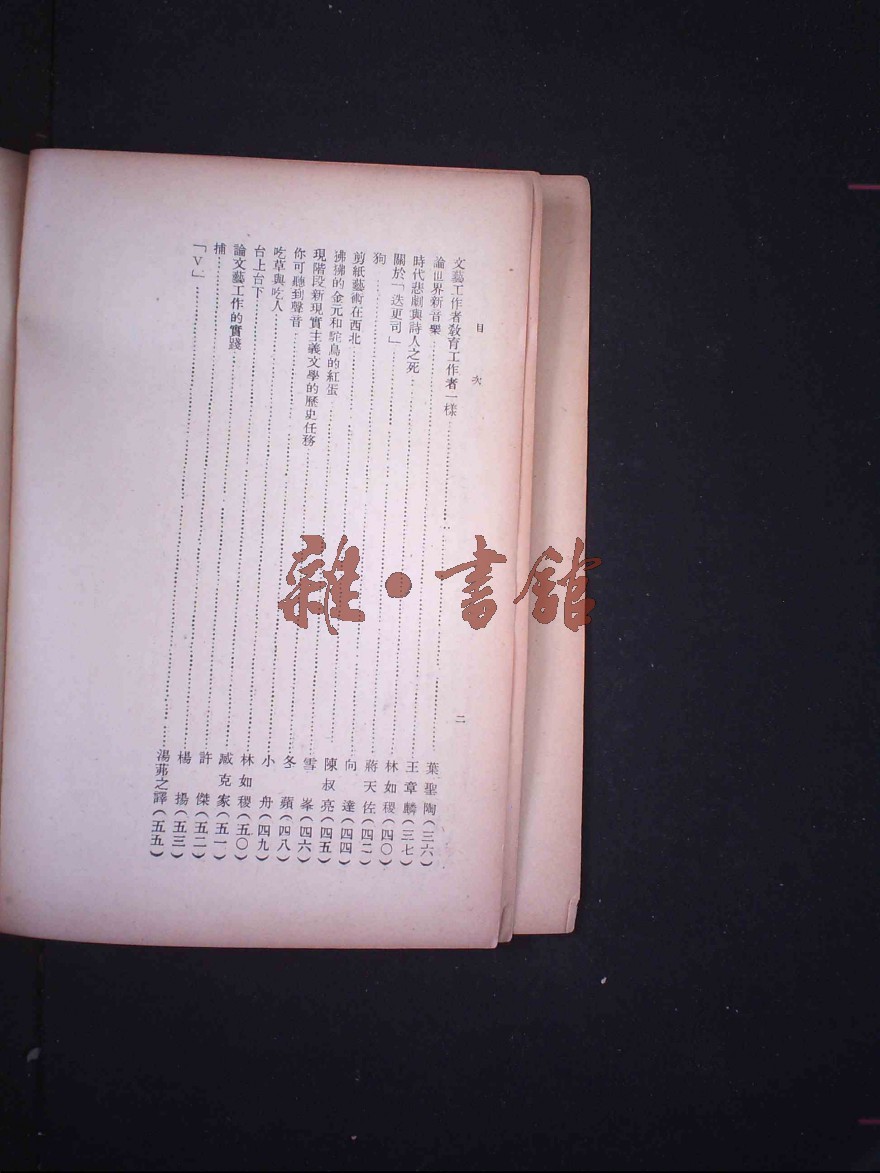 目次
二
文藝工作者教育工作者一樣……葉聖陶(三六)
論世界新音樂……王章麟(三七)
時代悲劇與詩人之死……林如稷(四〇)
關於「迭更司」……蔣天佐(四二)
狗……向達(四四)
剪紙藝術在西北……陳叔亮(四五)
狒狒的金元和鴕鳥的紅蛋……雪峯(四六)
現階段新現實主義文學的歷史任務……冬蘋(四八)
你可聽到聲音……小舟(四九)
吃草與吃人……林如稷(五〇)
台上台下……臧克家(五一)
論文藝工作的實踐……許傑(五二)
捕……楊揚(五三)
「V」……湯茀之譯(五五)
雜·書館